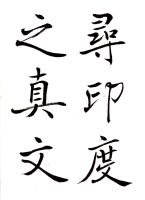 尋印度
之真文